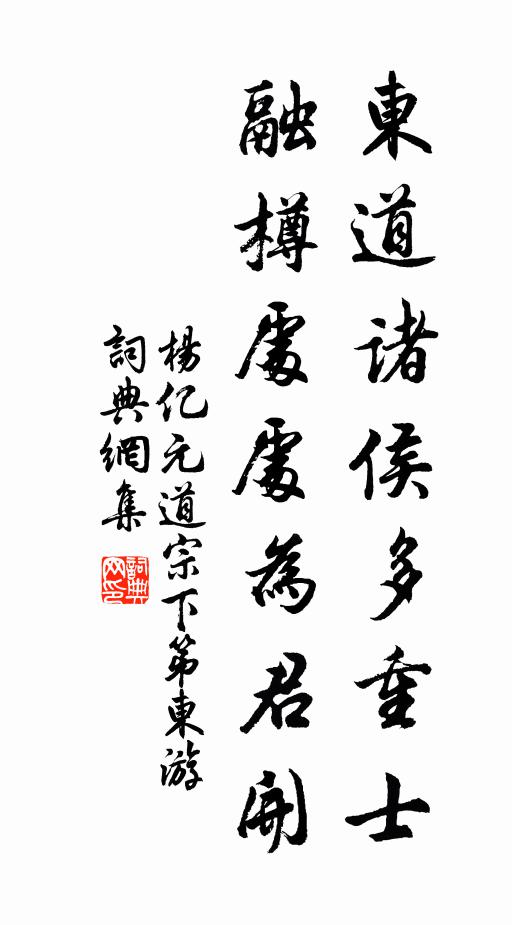 東道諸侯多重士
融樽處處為君開
楊亿元道宗下第東游
詞典網集
詞典網印